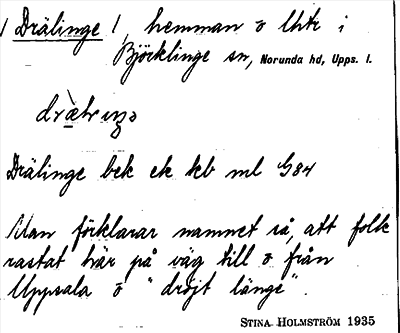 Drälinge, hemman o lht i
Björklinge sn, Norunda hd, Upps. l.
Drälinge bek ek kb ml G84
Man förklarar namnet så, att folk
rastat här på väg till o från
Uppsala o "dröjt länge".
STINA HOLMSTRÖM 1935